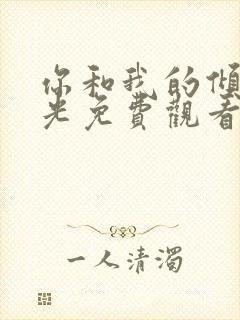 你和我的傾
光免費觀看
一人清濁